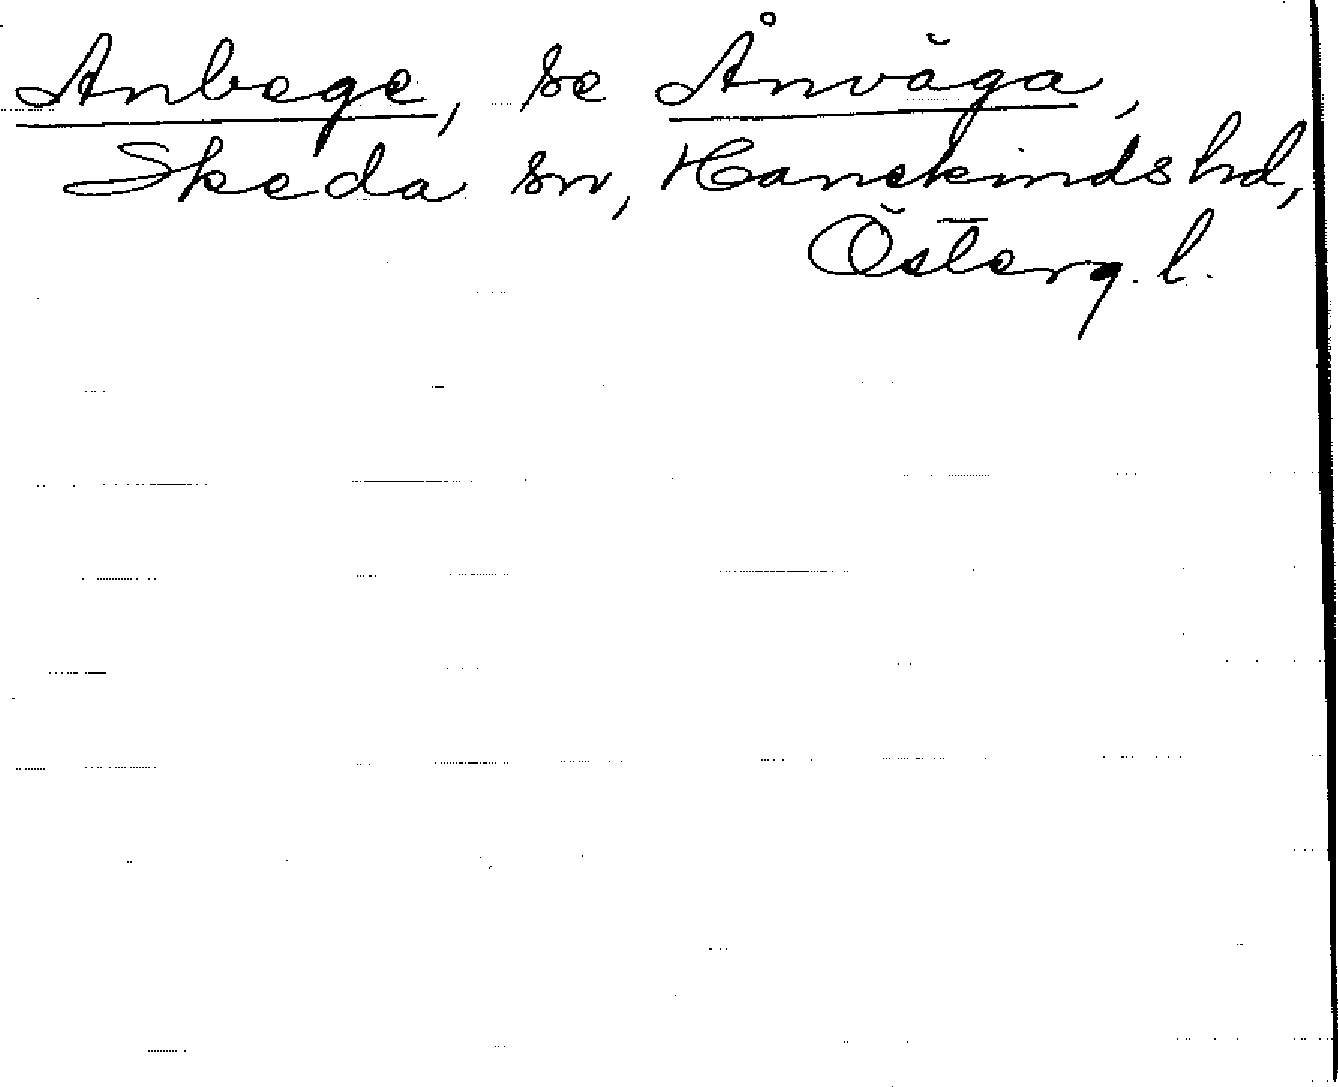 Anbege, se Ånväga,
Skeda sn, Hanekinds hd,
Österg. l.